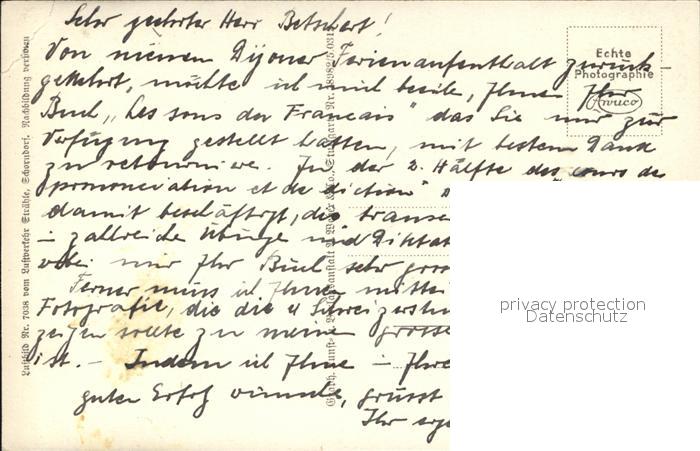 Sehr geehrter Herr Betschart!
Von meinem Dijoner Ferienaufenthalt zurück-
gekehrt, möchte ich mich beeile, Ihnen Ihr
Buch „Les sons du Francais" das Sie mir zur
Verfügung gestellt hatten, mit bestem Dank
zu retourniere. In der 2. Hälfte des cours de
prononciation et de diction"
damit beschäftigt, die
- zahlreiche Übunge und Diktat
wobei mir Ihr Buch sehr
Ferner muss ich Ihnen
Fotografie, die die 4 Schweizer
zeigen sollte zu meine grosse
ist. - Indem ich Ihne - Ihre
guten Erfolg wünsche, grüsst
Ihr
Echte
Photographie
Luftbild Nr. 7038 vom Luftverkehr Strähle, Schorndorf. Nachbildung verboten
privacy protection
Datenschutz